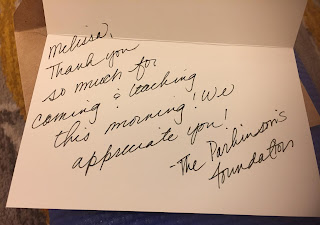 Melissa,
Thank you
so much for
coming & teaching
this morning! We
appreciate you!
-The Parkinson's
foundation